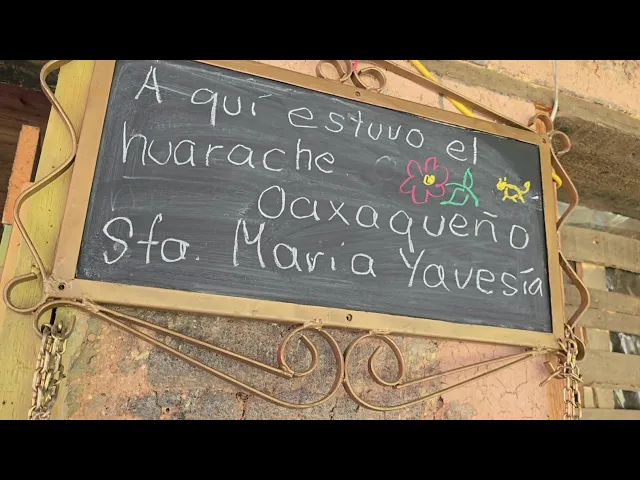 A quí estuvo el
huarache
Oaxaqueño
Sta. Maria Yavesía